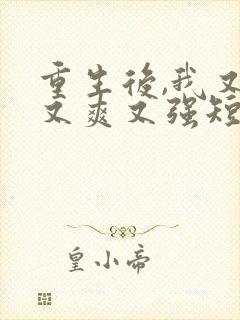 重生後,我又
又爽又强短
皇小帝